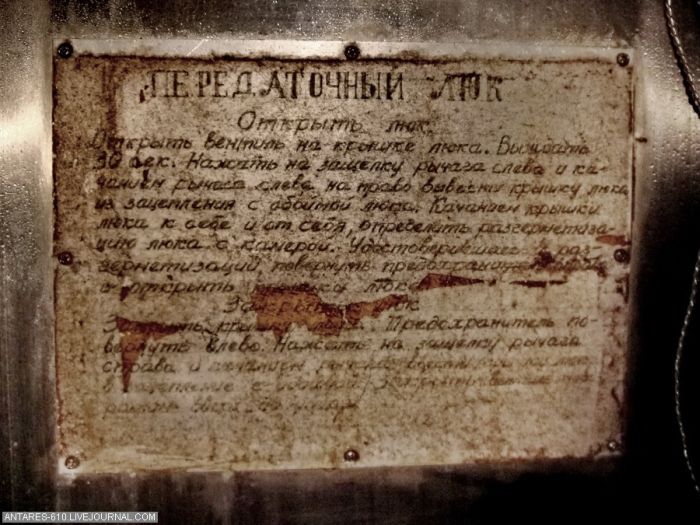 ПЕРЕДАТОЧНЫЙ ЛЮК
Открыть люк.
Открыть вентиль на крышке люка. Выждать
30 сек. Нажать на защелку рычага слева и ка-
чанием рычага слева на право вывести крышку люка
из зацепления с обоймой люка. Качанием крышки
люка к себе и от себя, определить разгерметиза-
цию люка с камерой. Удостоверившись в раз-
герметизации повернуть
и открыть крышку люка
Закрыть люк
Закрыть крышку люка. Предохранитель по-
вернуть влево. Нажать на защелку рычага
справа и
в зацепление с
ANTARES-610.LIVEJOURNAL.COM